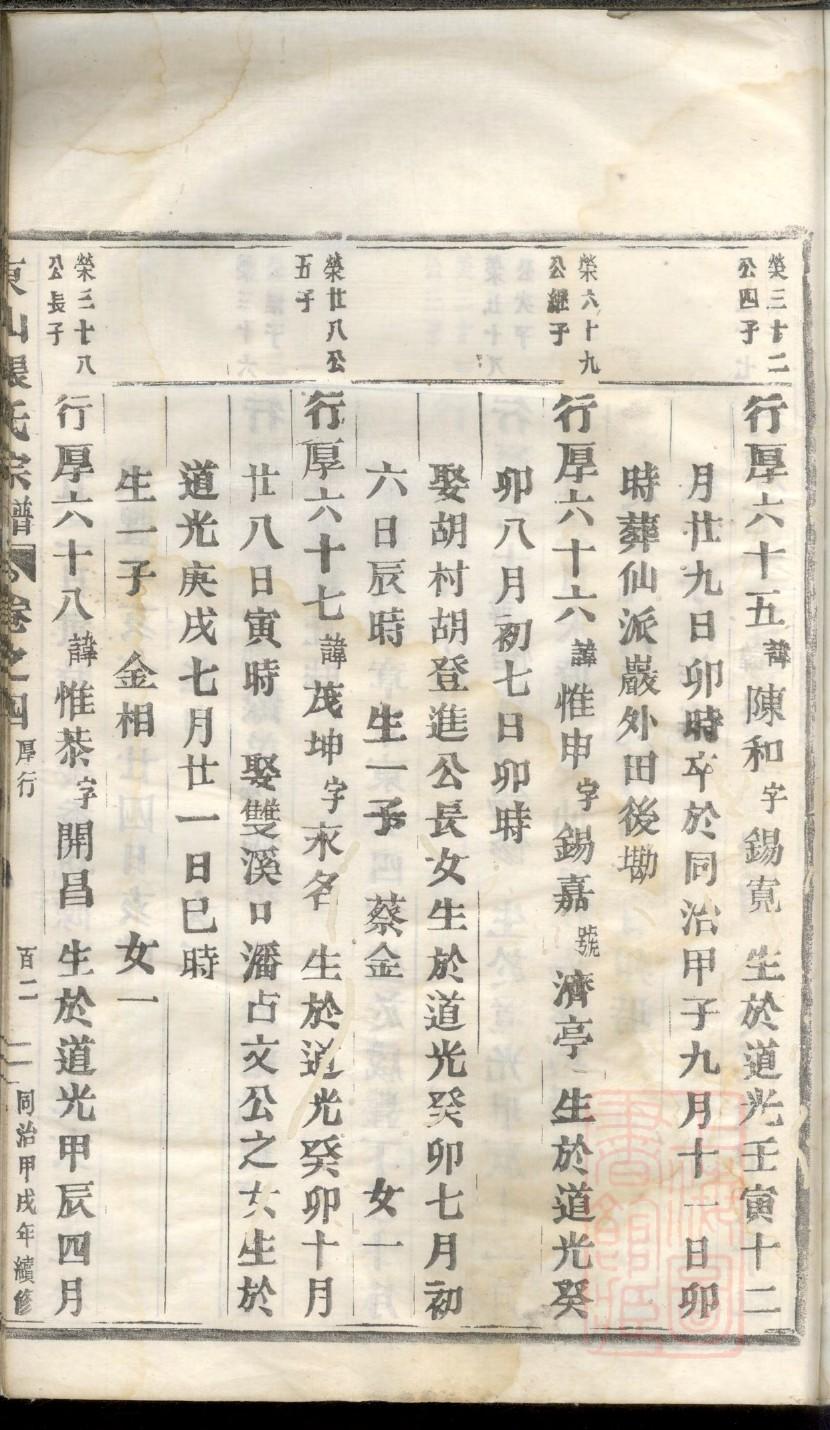 榮三十二
公四子
行厚六十五諱陳和字錫寬 生於道光壬寅十二
月廿九日卯時卒於同治甲子九月十一日卯
時葬仙派巖外田後墈
榮六十九
公繼子
行厚六十六諱惟申字錫嘉號濟亭 生於道光癸
卯八月初七日卯時
娶胡村胡登進公長女生於道光癸卯七月初
六日辰時 生一子 蔡金 女一
榮廿八公
五子
行厚六十七諱茂坤字永名 生於道光癸卯十月
廿八日寅時 娶雙溪口潘占文公之女生於
道光庚戌七月廿一日巳時
生一子 金相 女一
榮三十八
公長子
行厚六十八諱惟恭字開昌 生於道光甲辰四月
東山張氏宗譜 卷之四 厚行 百二 同治甲戌年續修